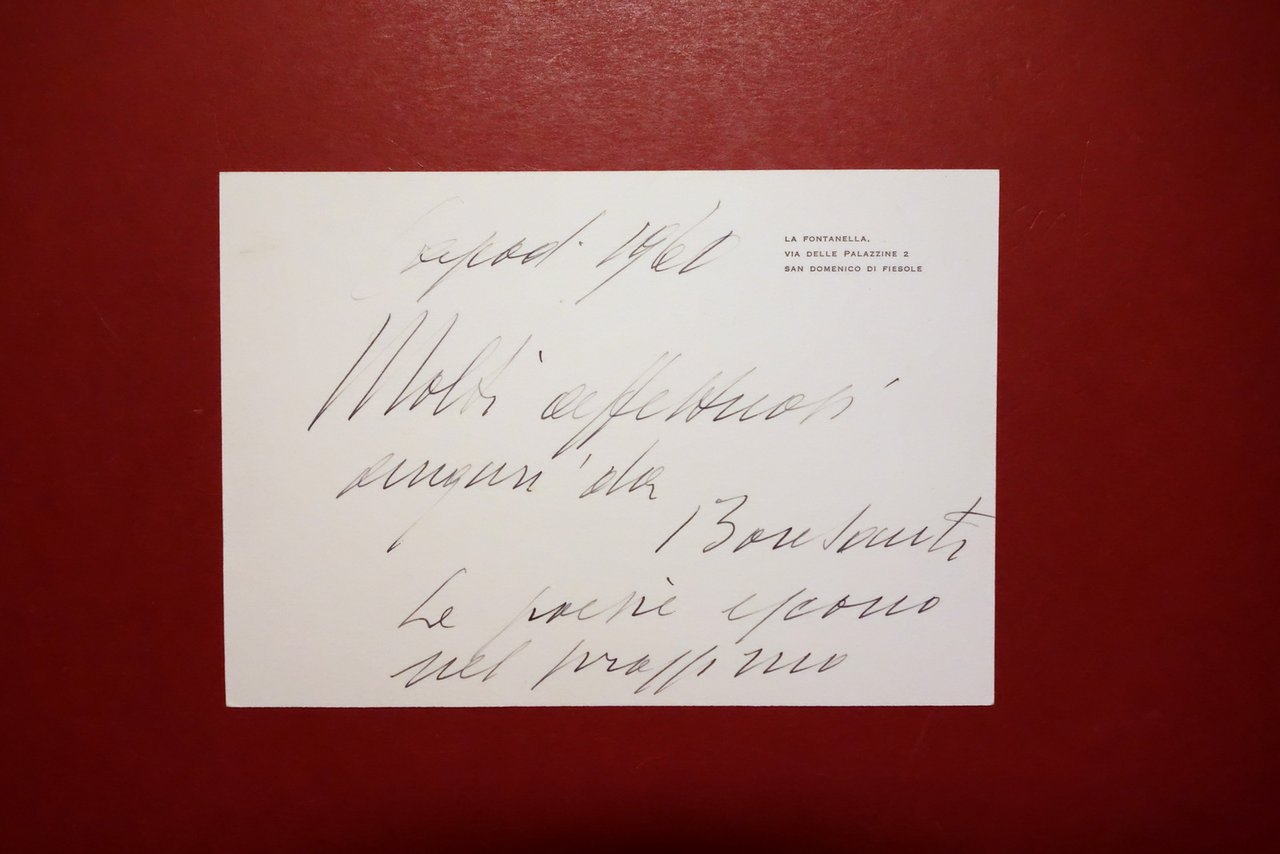 Capod. 1961
LA FONTANELLA,
VIA DELLE PALAZZINE 2
SAN DOMENICO DI FIESOLE
Molti affettuosi
auguri da
Bonsanti
Le poesie escono
nel prossimo